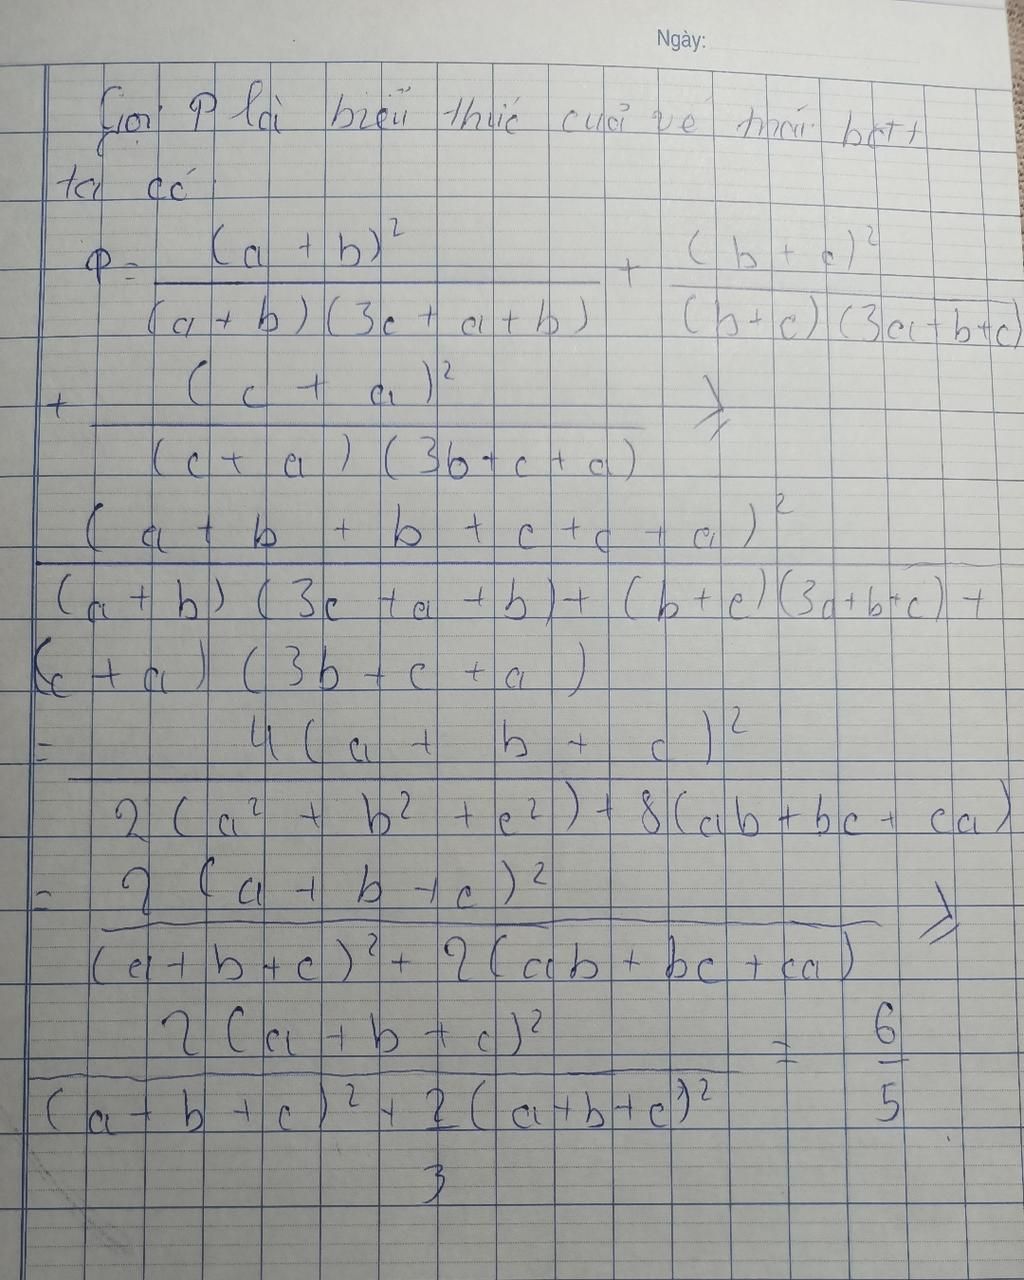 Ngày:
Gọi P là biểu thức của vế trái bđt
ta có
P = (a + b)² / (a + b)(3c + a + b) + (b + c)² / (b + c)(3a + b + c)
+ (c + a)² / (c + a)(3b + c + a) ≥
(a + b + b + c + c + a)²
(a + b)(3c + a + b) + (b + c)(3a + b + c) +
(c + a)(3b + c + a)
= 4(a + b + c)²
2(a² + b² + c²) + 8(ab + bc + ca)
= 2(a + b + c)² ≥
(a + b + c)² + 2(ab + bc + ca)
2(a + b + c)² = 6/5
(a + b + c)² + 2(a + b + c)²
3